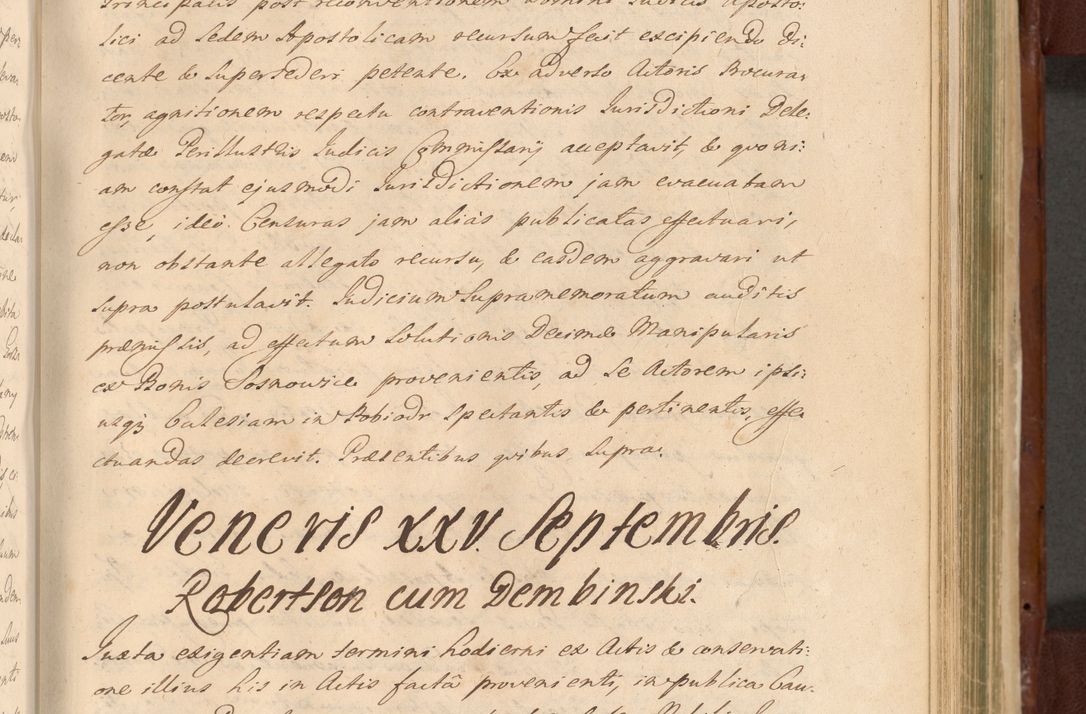 Principalis post reconventionem Domini Iudicis Aposto:
lici ad Sedem Apostolicam recursum fecit excipiendo di:
cente & Supersederi petente. Ex adverso Actoris Procura,
tor, agnitionem respectu contraventionis Iurisdictioni Dele:
gatæ Perillustris Iudicis Commissarij acceptavit, & quoni:
am constat ejusmodi Iurisdictionem jam evacuatam
esse, ideo Censuras jam alias publicatas effectuari,
non obstante allegato recursu, & easdem aggravari ut
supra postulavit. Iudicium Supramemoratum auditis
præmissis, ad effectum Solutionis Decimæ Manipularis
ex Bonis Sosnowice provenientis, ad Se Actorem ipsi:
usq3 Ecclesiam in Pobiedr spectantis & pertinentis, effe
ctuandas decrevit. Præsentibus quibus supra.
Veneris XXV. Septembris.
Robertson cum Dembinski.
Iuxta exigentiam termini hodierni ex Actis & conservati:
one illius his in Actis factâ provenienti, in publica Cau: